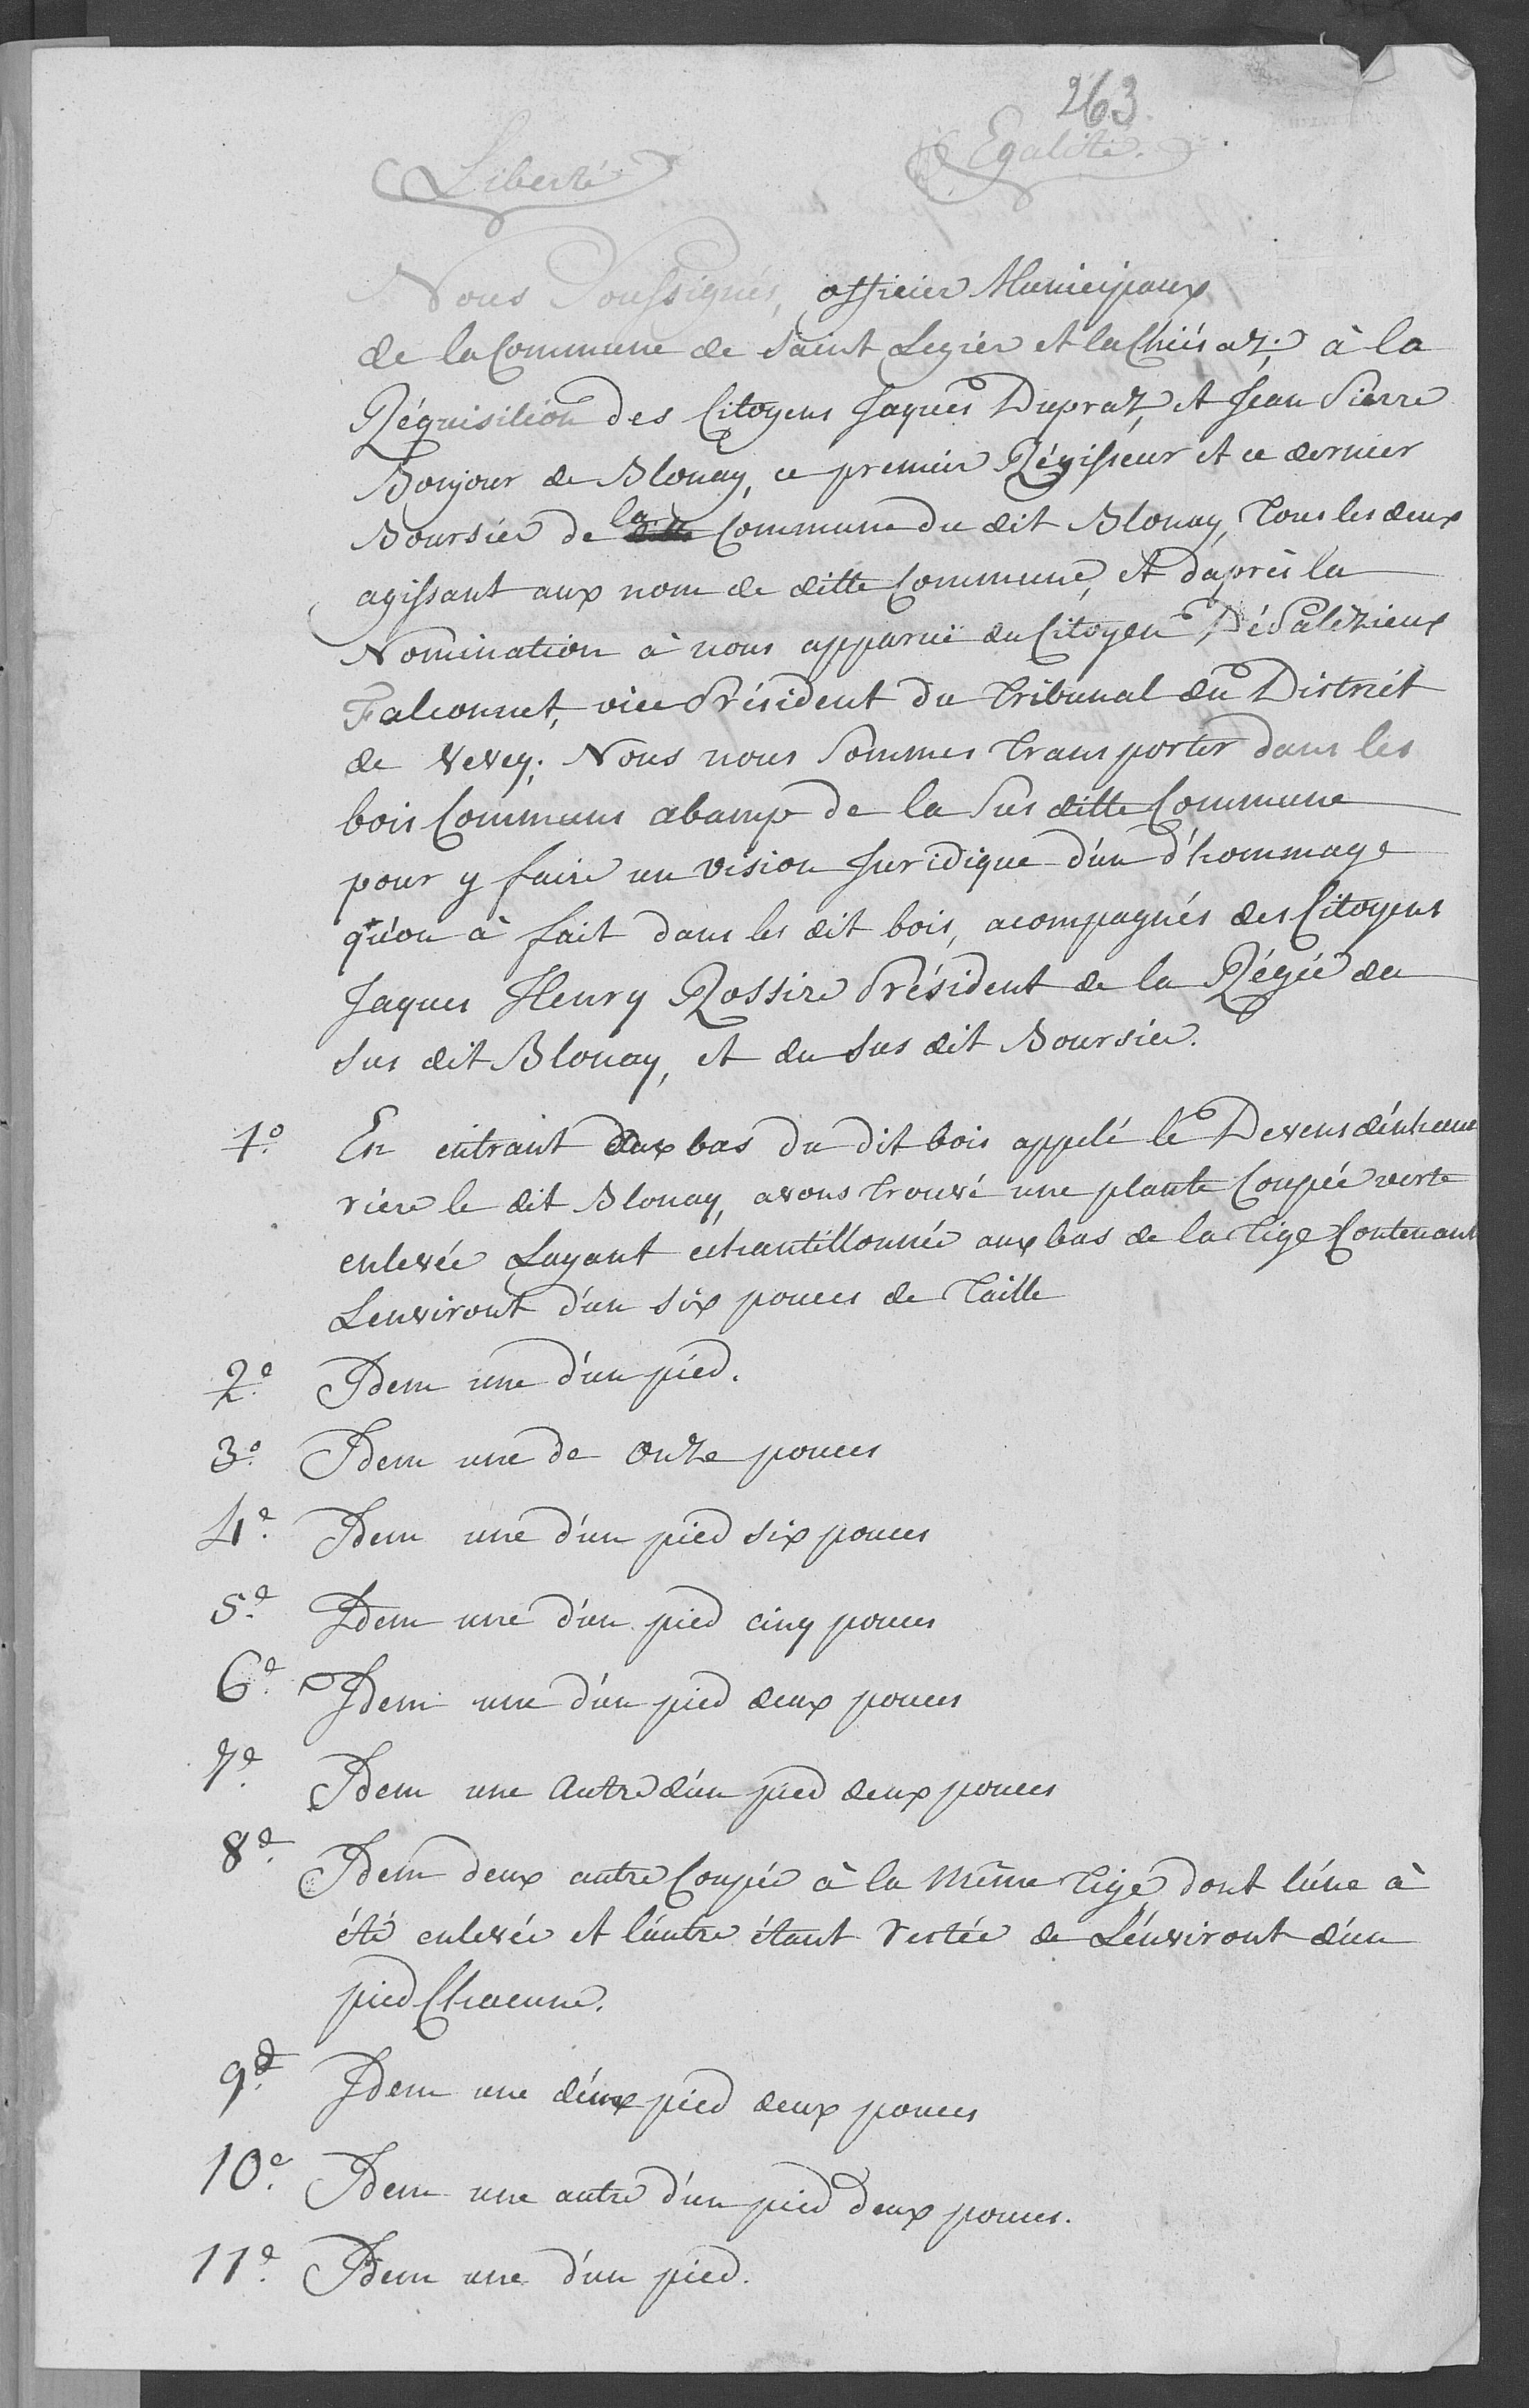 263.
Liberté Egalité.
Nous Soussignés, officier Municipaux
de la Commune de Saint Legier et la Chiésaz; à la
Réquisition des Citoyens Jaques Dupraz, et Jean Pierre
Bonjour de Blonay, ce premier Régisseur et ce dernier
Boursier de la Commune du dit Blonay, Tous les deux
agissant aux nom de ditte Commune, et d'après la
Nomination à nous apparuë du Citoyen DéPalézieux
Falconnet, vice Président du Tribunal du District
de Vevey; Nous nous Sommes Transporter dans les
bois Communs abamp de la Sus ditte Commune
pour y faire un vision Juridique d'un d'hommage
qu'on à fait dans les dit bois, acompagnés des Citoyens
Jaques Henry Rossire Président de la Régie du
Sus dit Blonay, et du Sus dit Boursier.
1.° En entrant aux bas du dit bois appelé le Devens
rière le dit Blonay, avons Trouvé une plante Coupée verte
enlevée Layant echantillonnée aux bas de la Tige Contenant
Lenviront d'un six pouces de Taille
2.° Idem une d'un pied.
3.° Idem une de Onze pouces
4.e Idem une d'un pied six pouces
5.e Idem une d'un pied cinq pouces
6.e Idem une d'un pied deux pouces
7.e Idem une Autre d'un pied deux pouces
8.e Idem deux autre Coupée à la Même Tige dont l'une à
été enlevée et l'autre étant restée de L'environt d'un
pied Chacune.
9.e Idem une deux pied deux pouces
10.e Idem une autre d'un pied deux pouces.
11.e Idem une d'un pied.